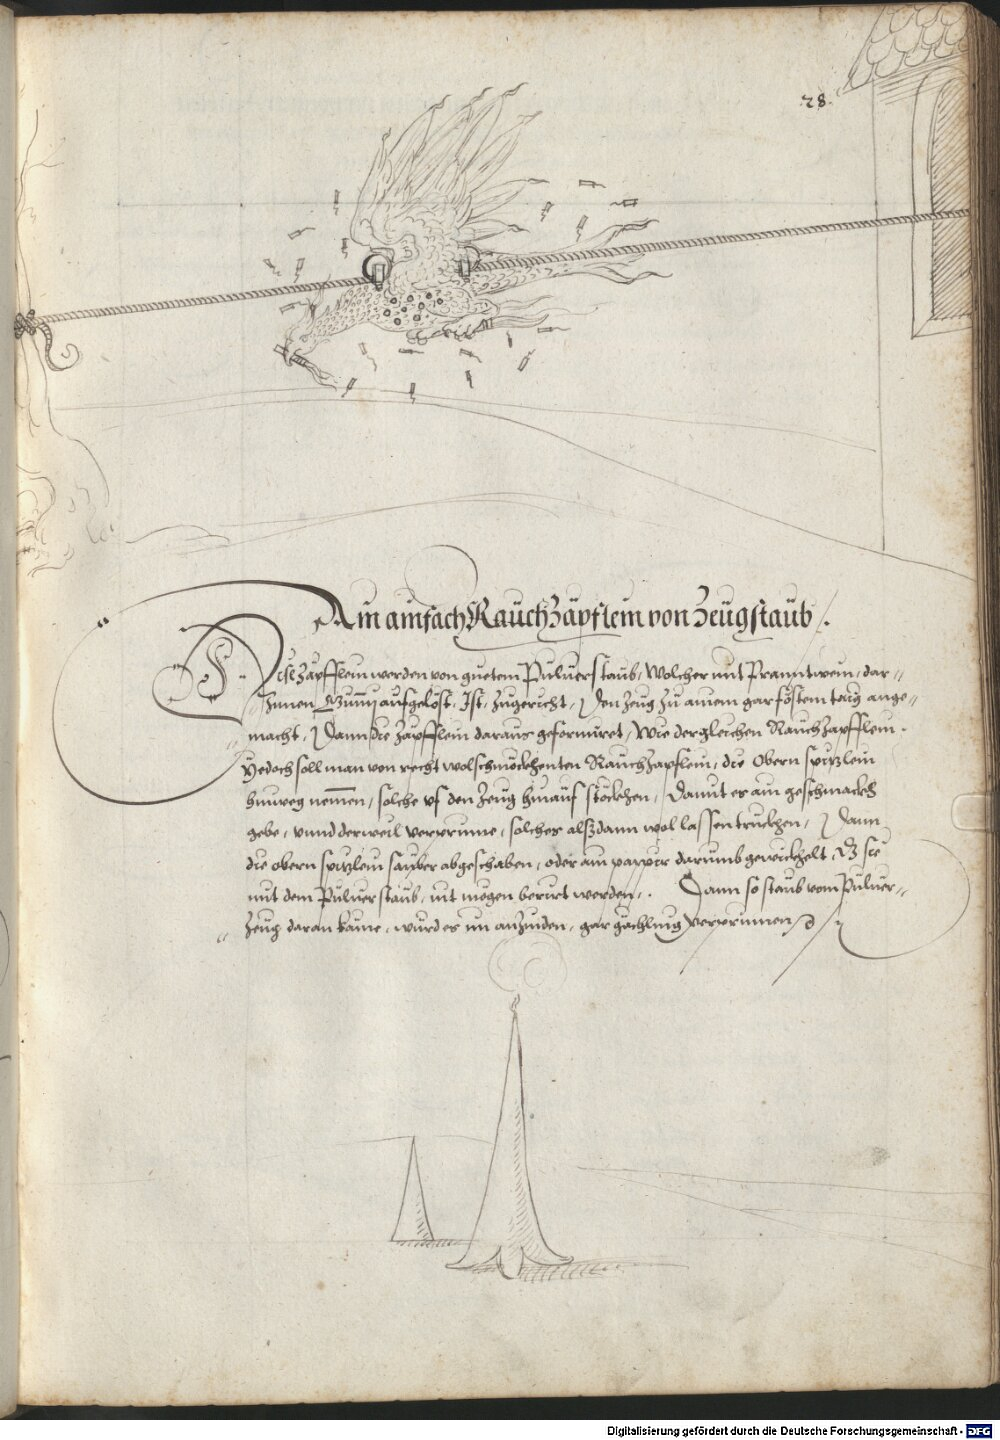 28.
Ain ainfach Rauchzäpflein von Zeugstaub /.
F. Dise Zäpfflein werden von guetem Puluerstaub, Wolcher mit Pranntwein, dar-
Innen Gummj aufgelöst, Ist, Zugericht, / Den Zeug zu ainem gar föstem taig ange-
macht, / Dann die Zäpfflein daraus geformiret, / Wie dergleichen Rauchzapfflein.
Yedoch soll man von recht wolschmöckhenten Rauchzapflein, die Obern spizlein
hinweg nemen, solche vf den Zeug hinauf stöckhen, Damit es ain geschmackh
gebe, vnnd derweil verprinne, solches alßdann wol lassen truckhen, / Dann
die obern spizlein sauber abgeschaben, oder ain pappir darumb gewickhelt, Dz sie
mit dem Puluerstaub, nit mögen berürt werden,. Dann so staub vom Puluer-
Zeug daran käme, wurd es im anzinden, gar gächling verprinnen /
Digitalisierung gefördert durch die Deutsche Forschungsgemeinschaft - DFG